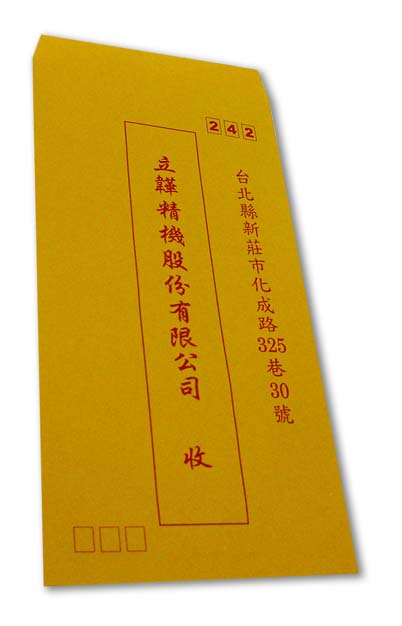 242
台北縣新莊市化成路325巷30號
立韡精機股份有限公司 收